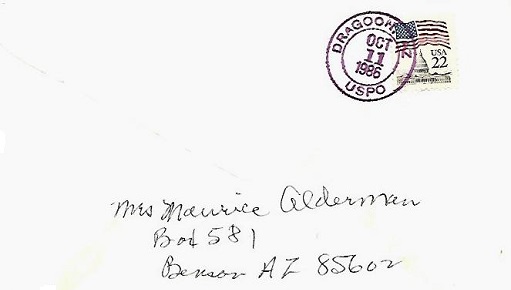 DRAGOON, AZ
OCT
11
1986
USPO
USA
22
Mrs Maurice Alderman
Box 581
Benson AZ 85602